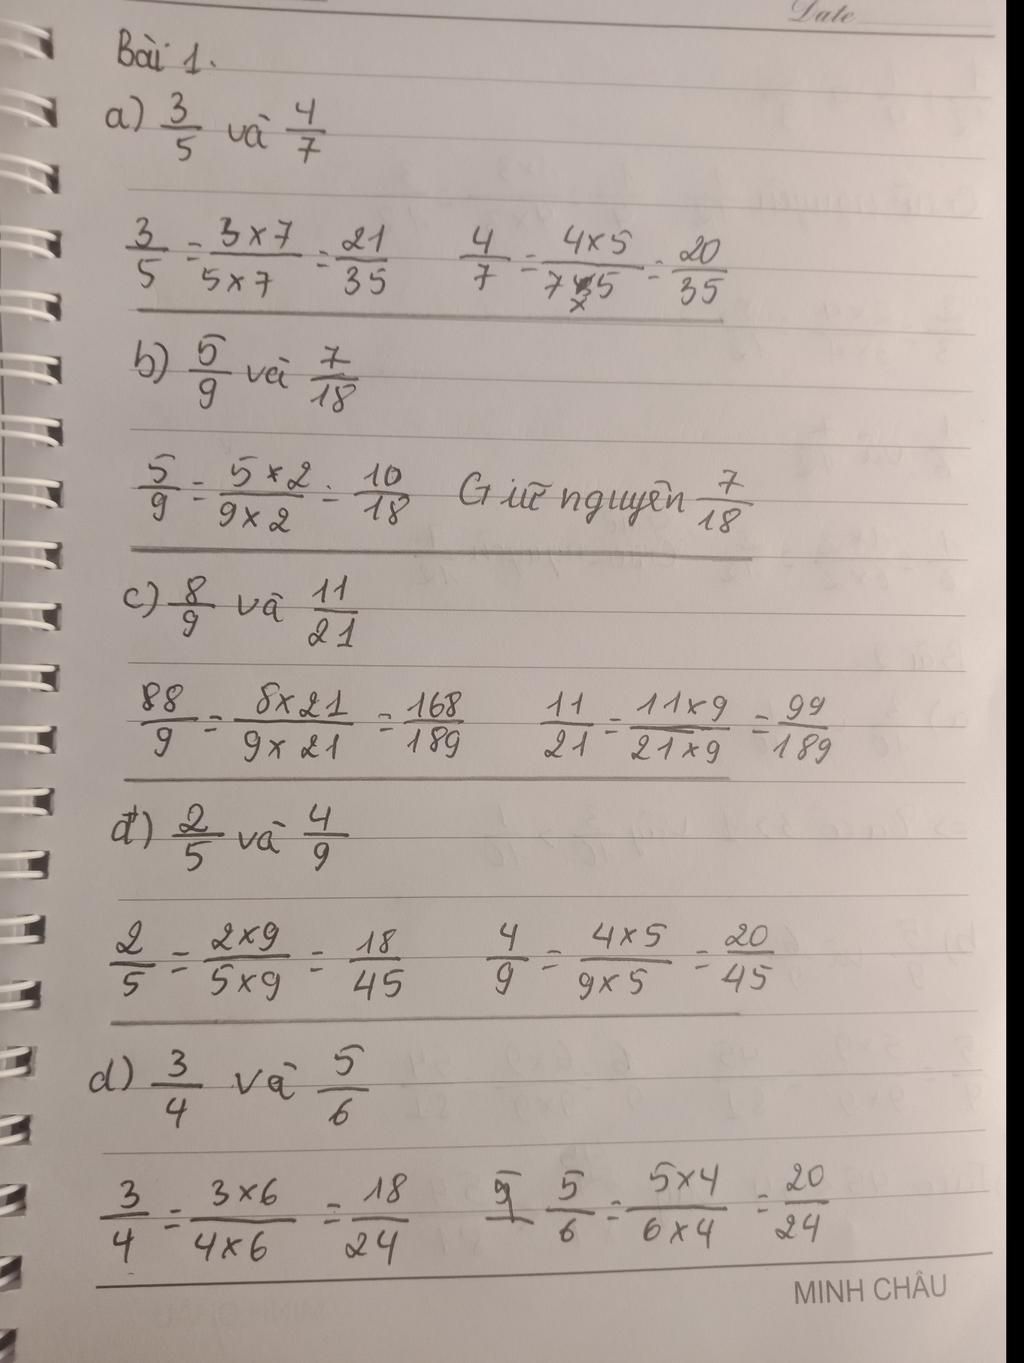 Date
Bài 1.
a) 3/5 và 4/7
3/5 = 3×7/5×7 = 21/35 4/7 = 4×5/7×5 = 20/35
b) 5/9 và 7/18
5/9 = 5×2/9×2 = 10/18 Giữ nguyên 7/18
c) 8/9 và 11/21
88/9 = 8×21/9×21 = 168/189 11/21 = 11×9/21×9 = 99/189
đ) 2/5 và 4/9
2/5 = 2×9/5×9 = 18/45 4/9 = 4×5/9×5 = 20/45
d) 3/4 và 5/6
3/4 = 3×6/4×6 = 18/24 5/6 = 5×4/6×4 = 20/24
MINH CHÂU